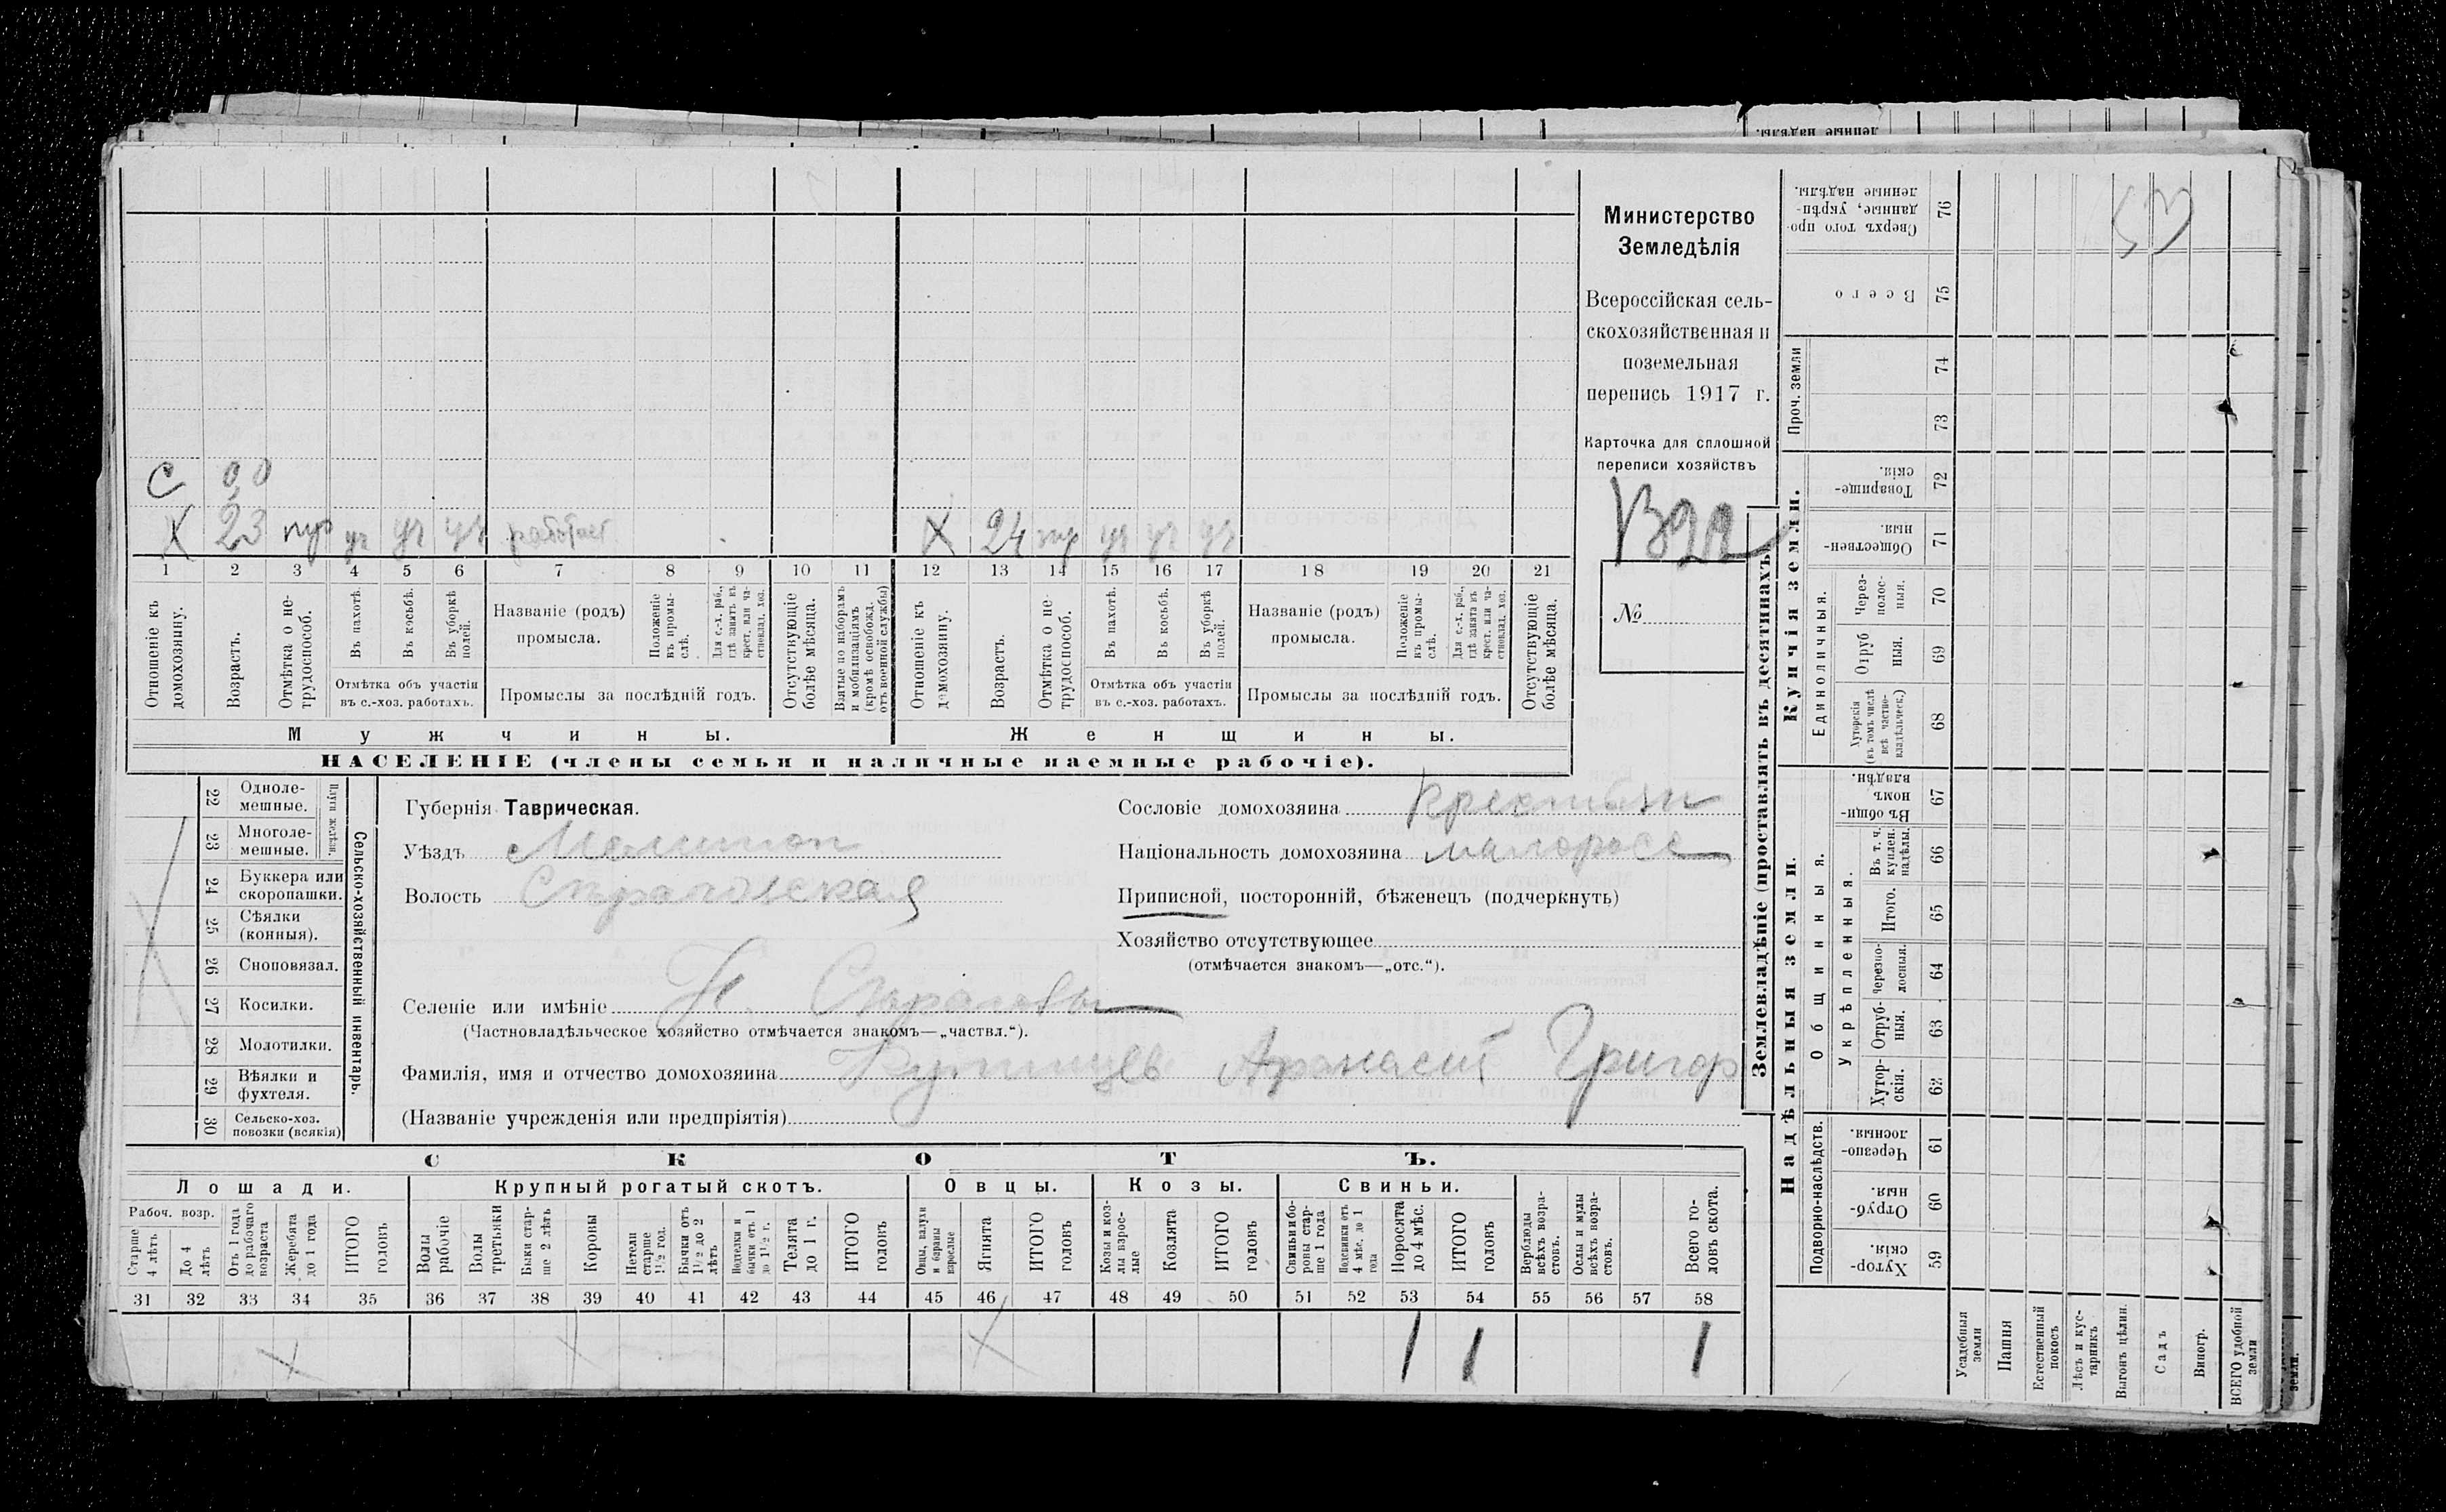 Министерство
Земледѣлія
Всероссійская сель-
скохозяйственная и
поземельная
перепись 1917 г.
Карточка для сплошной
переписи хозяйствъ
№
С 0,0
X 23 пр уч уч уч работает
X 24 пр уч уч уч
1 2 3 4 5 6 7 8 9 10 11 12 13 14 15 16 17 18 19 20 21
Отношеніе къ домохозяину.
Возрастъ.
Отмѣтка о не-трудоспособ.
Въ пахотѣ.
Въ косьбѣ.
Въ уборкѣ полей.
Отмѣтка объ участіи
въ с.-хоз. работахъ.
Названіе (родъ)
промысла.
Положеніе въ промы-слѣ.
Для с.-х. раб., гдѣ занятъ въ крест. или ча-стновлад. хоз.
Промыслы за послѣдній годъ.
Отсутствующіе болѣе мѣсяца.
Взятые по наборамъ и мобилизаціямъ (кромѣ освобожд. отъ военной службы)
Отношеніе къ домохозяину.
Возрастъ.
Отмѣтка о не-трудоспособ.
Въ пахотѣ.
Въ косьбѣ.
Въ уборкѣ полей.
Отмѣтка объ участіи
въ с.-хоз. работахъ.
Названіе (родъ)
промысла.
Положеніе въ промы-слѣ.
Для с.-х. раб., гдѣ занята въ крест. или ча-стновлад. хоз.
Промыслы за послѣдній годъ.
Отсутствующіе болѣе мѣсяца.
Мужчины.
Женщины.
НАСЕЛЕНІЕ (члены семьи и наличные наемные рабочіе).
22 Одноле-мешные.
23 Многоле-мешные.
Плуги желѣзн.
24 Буккера или скоропашки.
25 Сѣялки (конныя).
26 Сноповязал.
27 Косилки.
28 Молотилки.
29 Вѣялки и фухтеля.
30 Сельско-хоз. повозки (всякія)
Сельско-хозяйственный инвентарь.
Губернія Таврическая.
Уѣздъ Мелитоп
Волость
Селеніе или имѣніе
(Частновладѣльческое хозяйство отмѣчается знакомъ—„частвл.“).
Фамилія, имя и отчество домохозяина Афанасій Григор
(Названіе учрежденія или предпріятія)
Сословіе домохозяина крестьян
Національность домохозяина малоросс
Приписной, посторонній, бѣженецъ (подчеркнуть)
Хозяйство отсутствующее
(отмѣчается знакомъ—„отс.“).
СКОТЪ.
Лошади.
Рабоч. возр.
Старше 4 лѣтъ
До 4 лѣтъ
Отъ 1 года до рабочаго возраста
Жеребята до 1 года
ИТОГО головъ
Крупный рогатый скотъ.
Волы рабочіе
Волы третьяки
Быки стар-ше 2 лѣтъ
Коровы
Нетели старше 1½ год.
Бычки отъ 1½ до 2 лѣтъ
Подтелки и бычки отъ 1 до 1½ г.
Телята до 1 г.
ИТОГО головъ
Овцы.
Овцы, валухи и бараны взрослые
Ягнята
ИТОГО головъ
Козы.
Козы и коз-лы взрос-лые
Козлята
ИТОГО головъ
Свиньи.
Свиньи и бо-ровы стар-ше 1 года
Подсвинки отъ 4 мѣс. до 1 года
Поросята до 4 мѣс.
ИТОГО головъ
Верблюды всѣхъ возра-стовъ.
Ослы и мулы всѣхъ возра-стовъ.
Всего го-ловъ скота.
31 32 33 34 35 36 37 38 39 40 41 42 43 44 45 46 47 48 49 50 51 52 53 54 55 56 57 58
1 1 1
Землевладѣніе (проставлять въ десятинахъ)
Купчія земли.
Надѣльныя земли.
Сверхъ того про-данные, укрѣп-ленные надѣлы. 76
Всего 75
Проч. земли
74
73
Товарище-скія. 72
Обществен-ныя. 71
Единоличныя.
Через-полос-ныя. 70
Отруб ныя. 69
Хуторскія (въ томъ числѣ всѣ частно-владѣльческ.) 68
Общинныя.
Въ общи-номъ владѣн. 67
Укрѣпленныя.
Въ т. ч. куплен. надѣлы. 66
Итого. 65
Черезпо-лосныя. 64
Отруб-ныя. 63
Хутор-скія. 62
Подворно-наслѣдств.
Черезпо-лосныя. 61
Отруб-ныя. 60
Хутор-скія. 59
Усадебныя земли
Пашня
Естественный покосъ
Лѣсъ и кус-тарникъ
Выгонъ цѣлин.
Садъ
Виногр.
ВСЕГО удобной земли
53